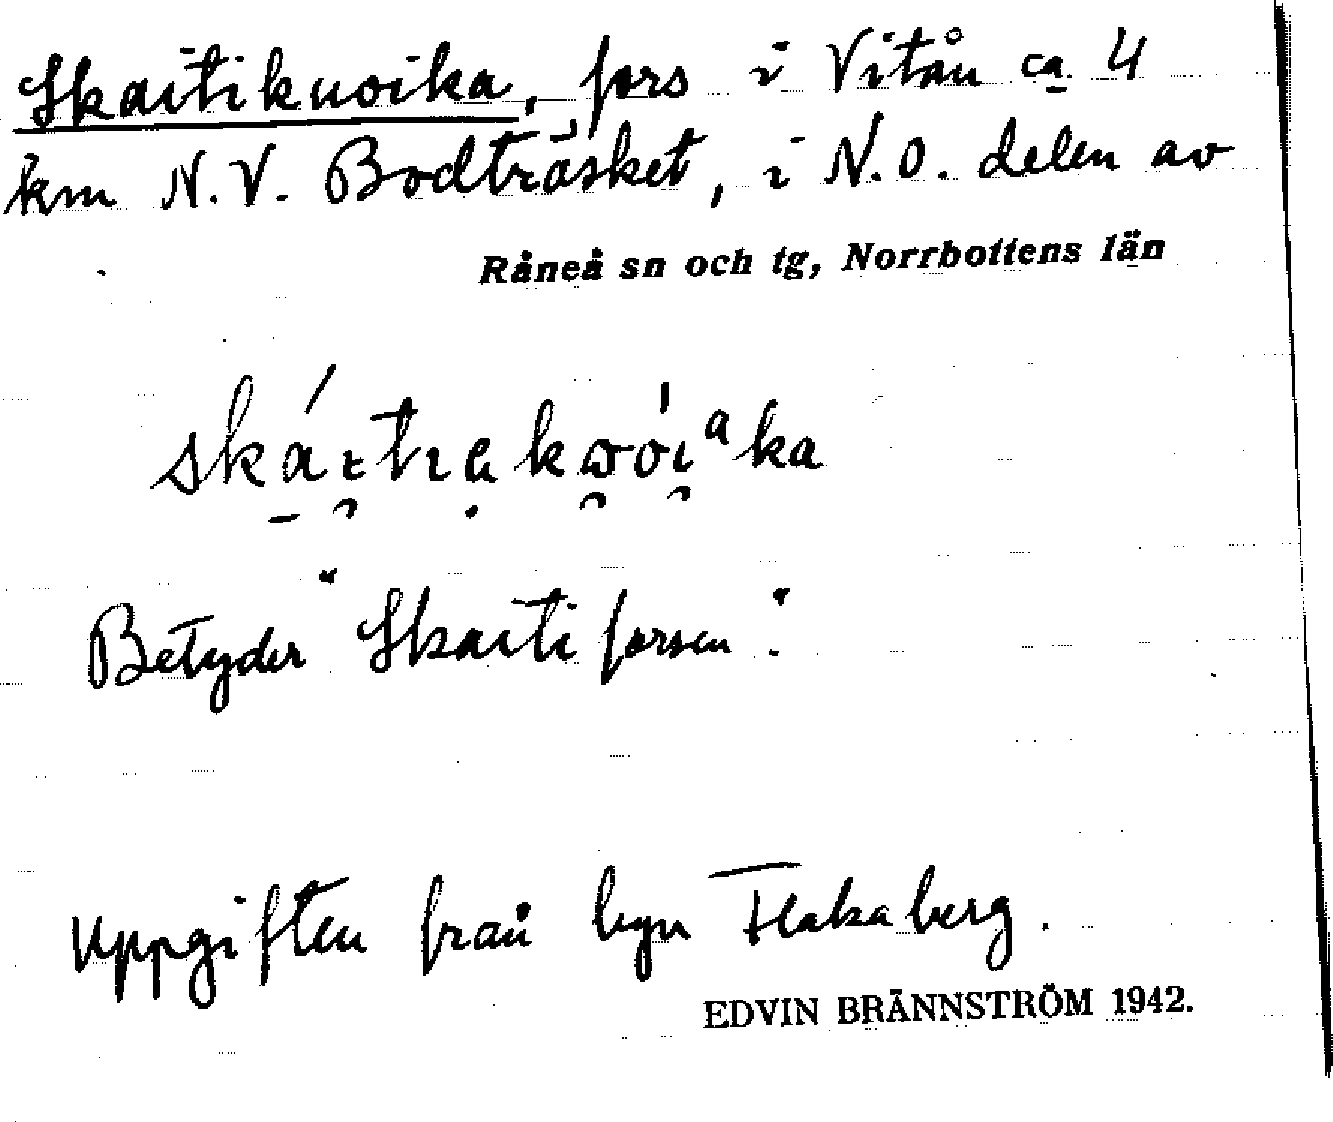 Skaitikuoika, fors i Vitån ca 4
km N.V. Bodträsket, i N.O. delen av
Råneå sn och tg, Norrbottens län
Betyder "Skaitiforsen".
Uppgiften från byn Flakaberg.
EDVIN BRÄNNSTRÖM 1942.